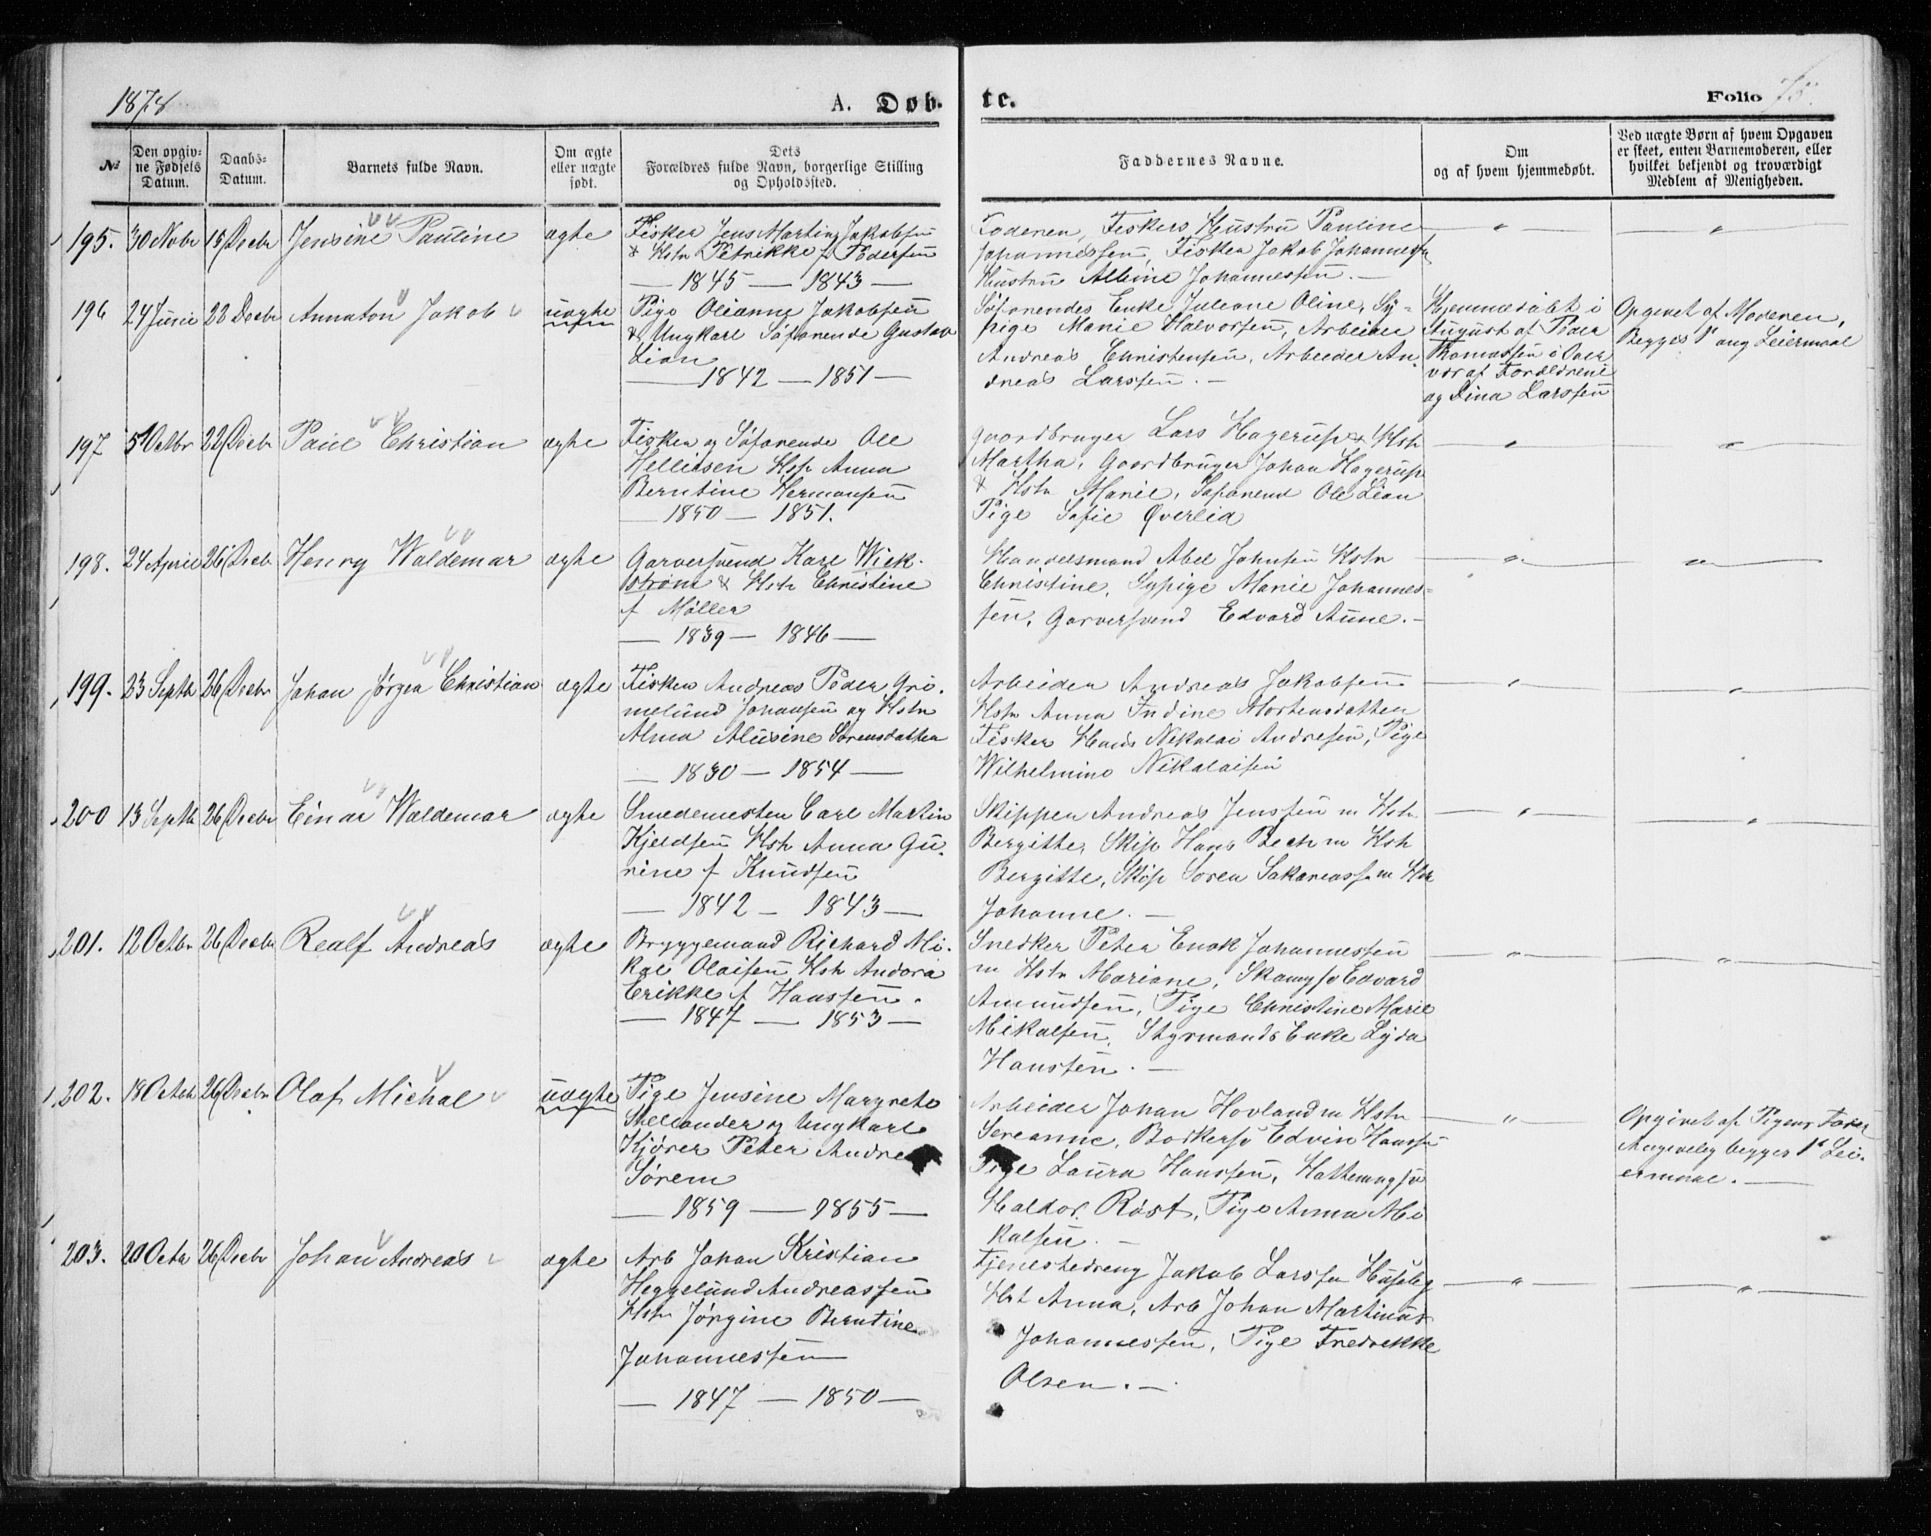 1878
A. Døb-
te.
Folio 75.
No
Den opgiv-
ne Fødsels
Datum.
Daabs-
Datum.
Barnets fulde Navn.
Om ægte
eller uægte
født.
Dets
Forældres fulde Navn, borgerlige Stilling
og Opholdssted.
Faddernes Navne.
Om
og af hvem hjemmedøbt.
Ved uægte Børn af hvem Opgaven
er skeet, enten Barnemoderen, eller
hvilket bekjendt og troværdigt
Medlem af Menigheden.
195. 30 Novbr 15 Decbr Jensine Pauline ægte
Fisker Jens Martin Jakobsen
& Hstr Petrikke f Pedersen
— 1845 — 1843 —
Foderen, Fiskers Hustru Pauline
Johannessen, Fisker Jakob Johannessen
Hustru Albine Johannessen. —
196 24 Juni 22 Decbr Annaton Jakob uægte
Pige Olianna Jakobsen
& Ungkarl Søfarende Gustav
Lian
— 1842 — 1851 —
Søfarendes Enke Juliane Oline, Sy-
pige Marie Halvorsen, Arbeider
Andreas Christensen, Arbeider An-
dreas Larssen. —
Hjemmedøbt i
August af Peder
Thomassen i Over
vær af Forældrene
og Dina Larssen
Opgivet af Moderen,
Begges 1ste ang Leiermaal
197 5 Octbr 22 Decbr Paul Christian ægte
Fisker og Søfarende Ole
Hellitsen Hst Anna
Berntine Hermansen
— 1850 — 1851.
Gaardbruger Lars Hagerup & Hstr
Martha, Gaardbruger Johan Hagerup
& Hstr Marie, Søfarend Ole Lian
Pige Sofie Øverlid
198. 24 April 26 Decbr Henry Waldemar ægte
Garversvend Karl Wick-
strøm & Hstr Christine
f Møller
— 1839 — 1846 —
Handelsmand Abel Johnsen Hstr
Christine, Sypige Marie Johannes-
sen, Garversvend Edvard Aune. —
199. 23 Septbr 26 Decbr Johan Jørgen Christian ægte
Fisker Andreas Peder Gri-
melund Johansen og Hstr
Alma Alusine Sørensdatter
— 1830 — 1854 —
Arbeider Andreas Jakobsen
Hstr Anna Indine Mortensdatter
Fisker Hans Nikolai Andresen, Pige
Wilhelmine Nikolaisen
200 13 Septbr 26 Decbr Einar Waldemar ægte
Smedemester Carl Martin
Kjeldsen Hstr Anna Gu-
rine f Knudsen
— 1842 — 1843 —
Skipper Andreas Jenssen m Hstr
Bergitte, Skip Hans Bech m Hst
Bergitte, Skip Soren Sakariass. m Hstr
Johanne. —
201. 12 Octbr 26 Decbr Realf Andreas ægte
Bryggemand Richard Mi-
kal Olaisen Hstr Andora
Erikke f Hanssen.
— 1847 — 1853 —
Snedker Peter Enok Johannessen
m Hstr Mariane, Skomgsv Edvard
Amundsen, Pige Christine Marie
Mikalsen, Styrmands Enke Lyda
Hanssen. —
202. 18 Octbr 26 Decbr Olaf Michal uægte
Pige Jensine Margrete
Mellander og Ungkarl
Kjører Peter Andre
Sørem
— 1859 — 1855 —
Arbeider Johan Hovland m Hstr
Sereanne, Bødkersv Edvin Hanssen
Pige Laura Hanssen, Hattemagsv
Haldor Røst, Pige Anna Mi
kalsen. —
Opgivet af Pigens Fader
Angivelig begges 1ste Lei-
ermaal. —
203. 20 Octbr 26 Decbr Johan Andreas ægte
Arb Johan Kristian
Heggelund Andreassen
Hstr Jørgine Berntine
Johannessen
— 1847 — 1850 —
Tjenestedreng Jakob Larssen Huseby
Hst Anna, Arb Johan Martinus
Johannessen, Pige Fredrikke
Olsen. —